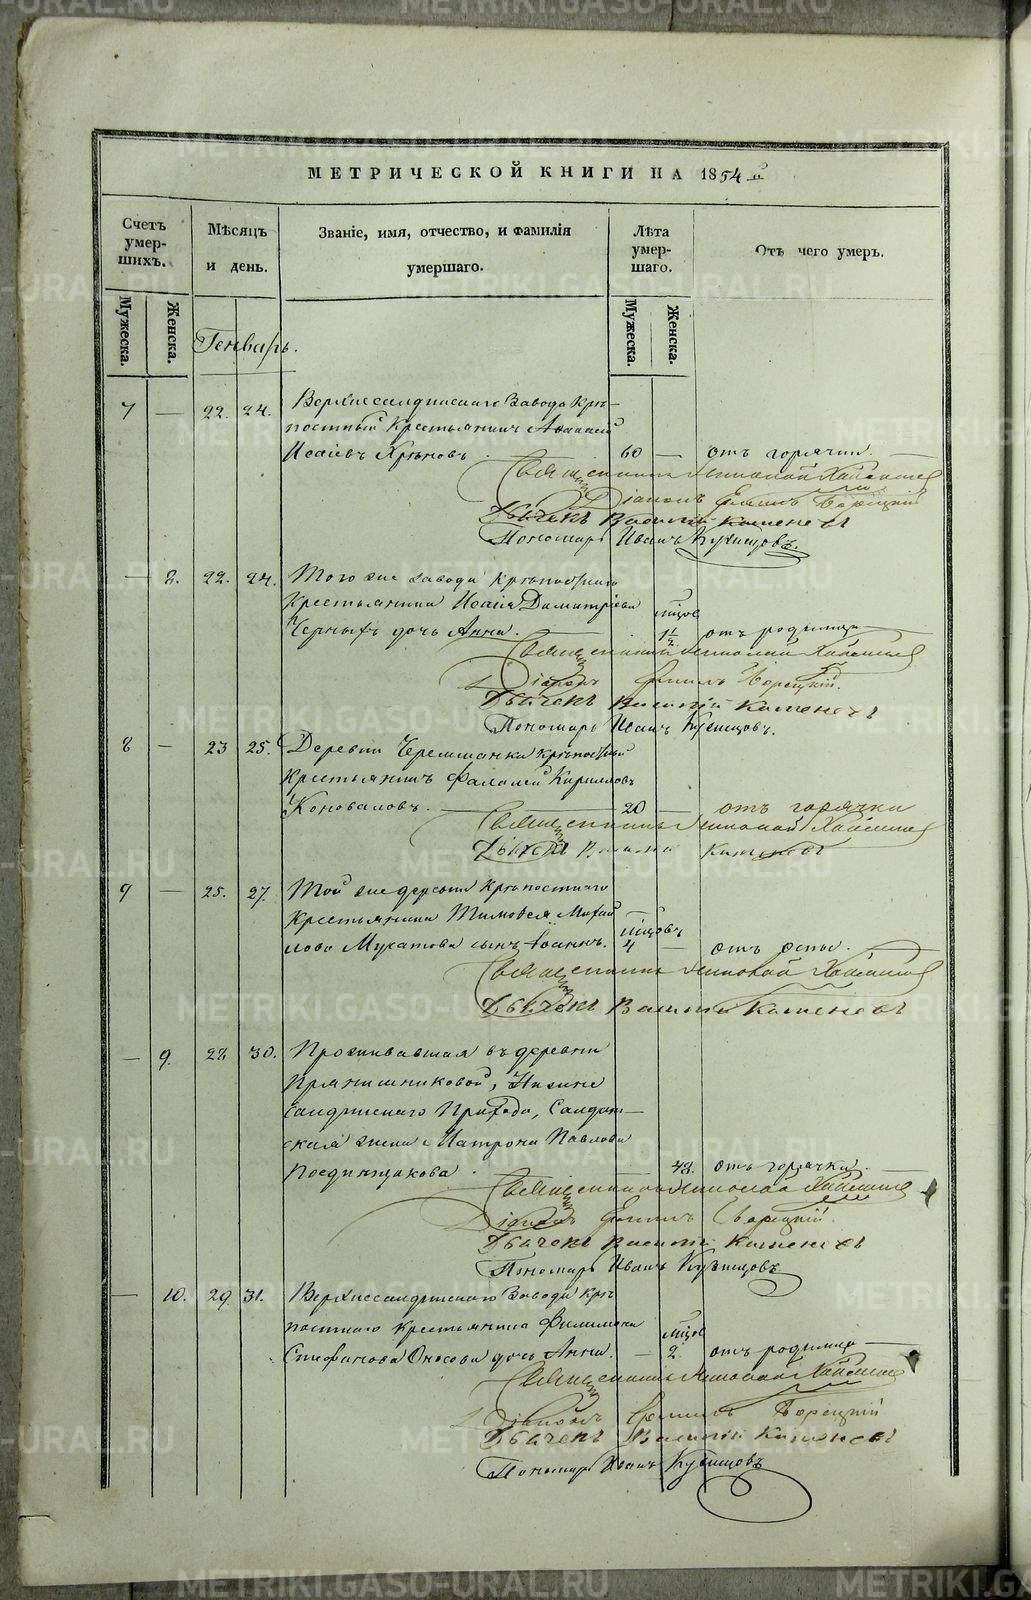 МЕТРИЧЕСКОЙ КНИГИ НА 1854
Счетъ умер-шихъ.
Мѣсяцъ и день.
Званіе, имя, отчество, и фамилія умершаго.
Лѣта умер-шаго.
Отъ чего умеръ.
Мужеска.
Женска.
Мужеска.
Женска.
Генварь.
7 — 22. 24. Верхнесалдинскаго Завода Крѣ-
постный Крестьянинъ Аѳанасій
Исаіевъ Хрѣновъ. 60 — отъ горячки.
Священникъ Николай
Діаконъ
Дьячекъ Василій Каменевъ
Пономарь Иванъ Кузнецовъ.
— 8. 22. 24. Того же завода крѣпостнаго
Крестьянина Исаія Димитріева
Черныхъ дочь Анна. 1½ отъ родимца
Священникъ Николай
Діаконъ
Дьячекъ Василій Каменевъ
Пономарь Иванъ Кузнецовъ.
8 — 23 25. Деревни Черемшанки крѣпостный
Крестьянинъ Фалалей Кирилловъ
Коноваловъ. 20 — отъ горячки
Священникъ Николай
Дьячекъ Каменевъ
9 — 25. 27. Той же деревни крѣпостнаго
Крестьянина Тимоѳея Михай
лова Мукатова сынъ Іоаннъ. 4 — отъ оспы.
Священникъ Николай
Дьячекъ Василій Каменевъ
— 9. 28 30. Проживавшая въ деревни
Прянишниковой, Нижне
салдинскаго Прихода, Салдат-
ская жена Матрона Павлова
48. отъ горячки.
Священникъ Николай
Діаконъ
Дьячекъ Василій Каменевъ
Пономарь Иванъ Кузнецовъ
— 10. 29 31. Верхнесалдинскаго Завода крѣ
постнаго крестьянина Филимона
Стефанова Оносова дочь Анна. — 2. отъ родимца
Священникъ Николай
Діаконъ
Дьячекъ Василій Каменевъ
Пономарь Иванъ Кузнецовъ
METRIKI.GASO-URAL.RU